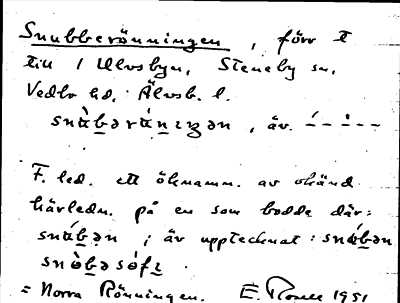 Snubberönningen, förr t
till 1 Ulvsbyn, Steneby sn,
Vedbo hd. Älvsb. l.
snùb̲ərún̲ɪŋən, äv. –́ – –̇ –
F. led. ett öknamn av okänd
härledn. på en som bodde där:
snúb̲ən ; är upptecknat: snúb̲ən
snùb̲əsófɪ̲.
= Norra Rönningen. E. 1951